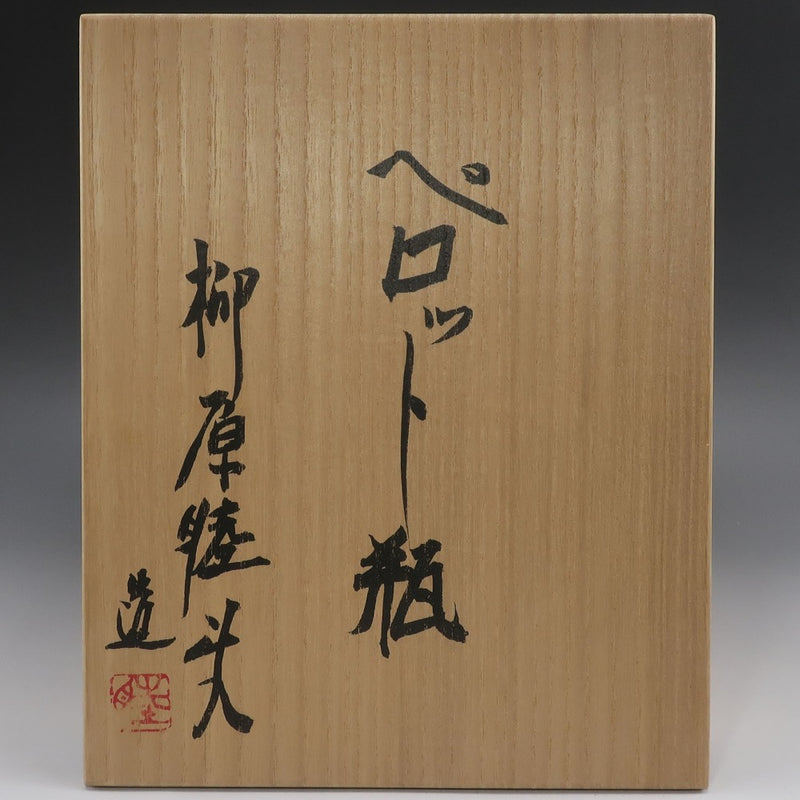 ペロット瓶
柳原睦夫
造